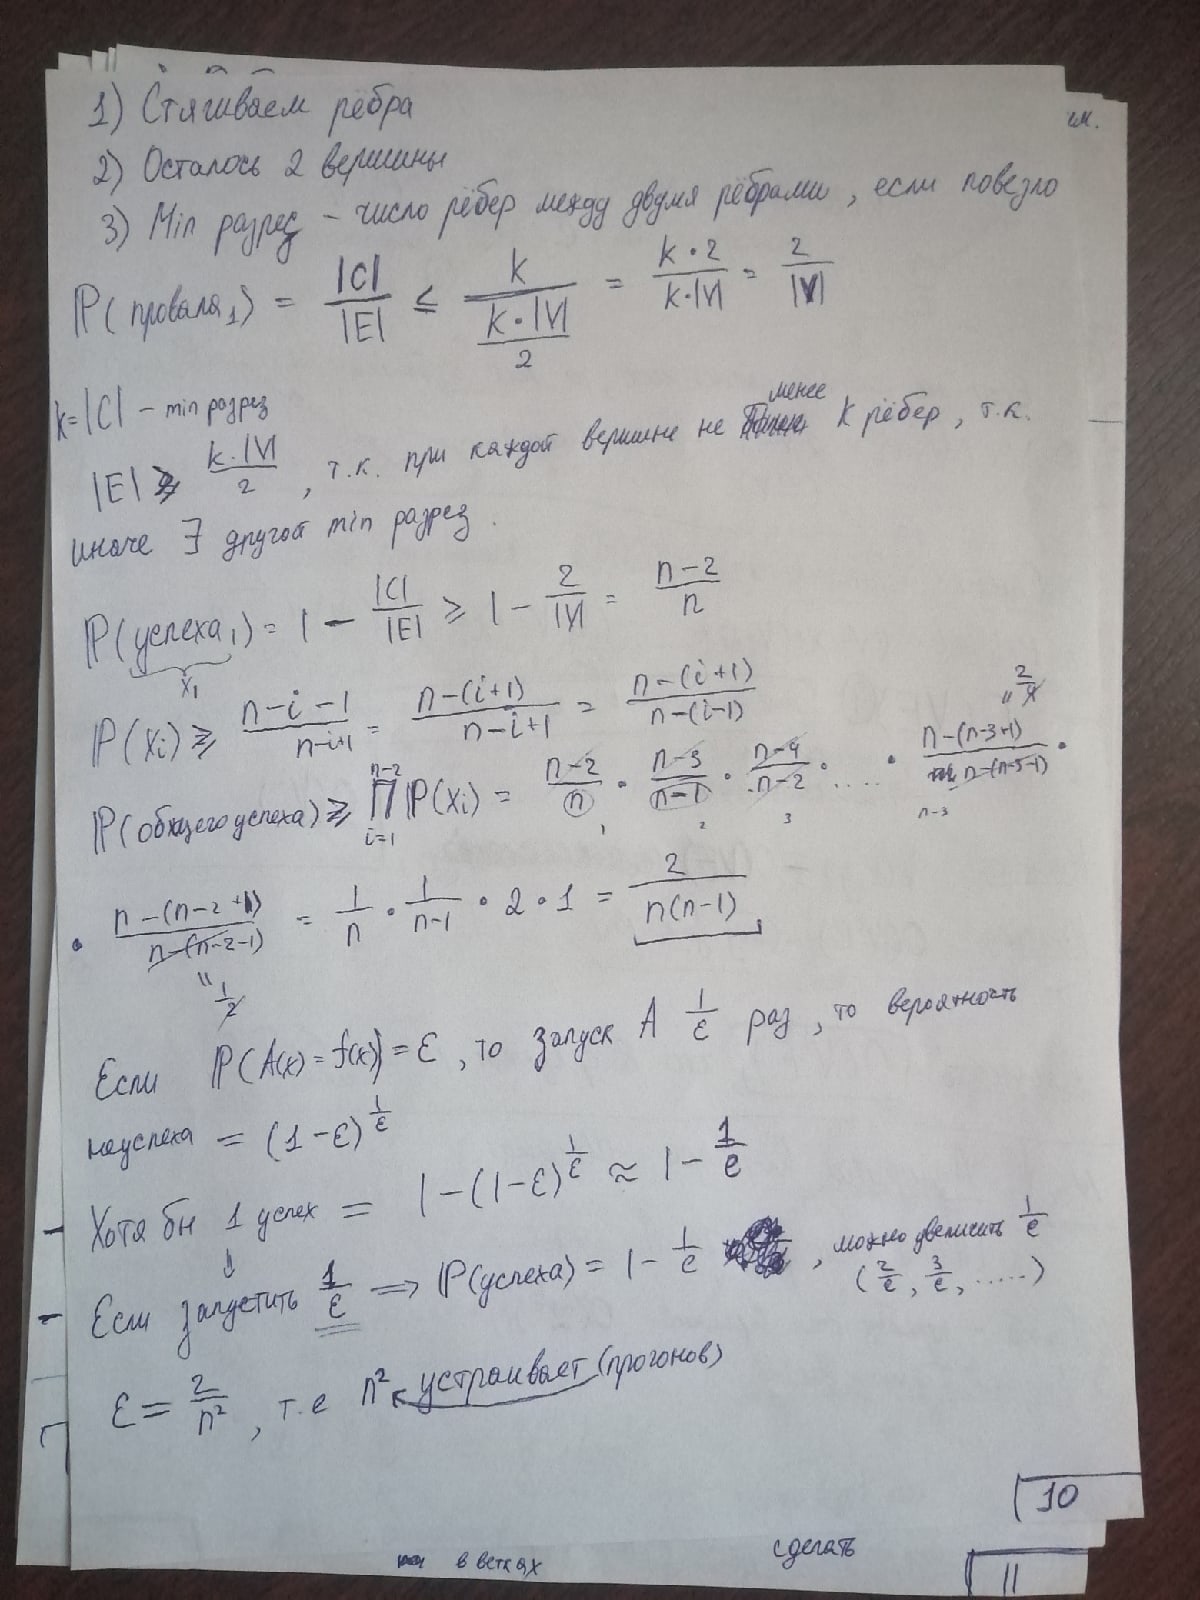 1) Стягиваем рёбра
им.
2) Осталось 2 вершины
3) Min разрез – число рёбер между двумя рёбрами, если повезло
ℙ(провала₁) = |C|/|E| ≤ k/(k·|V|/2) = k·2/(k·|V|) = 2/|V|
k=|C| – min разрез
|E| ⩾ k·|V|/2, т.к. при каждой вершине не менее k рёбер, т.к.
иначе ∃ другой min разрез.
ℙ(успеха₁) = 1 – |C|/|E| ⩾ 1 – 2/|V| = (n–2)/n
x₁
ℙ(xᵢ) ⩾ (n–i–1)/(n–i+1) = (n–(i+1))/(n–i+1) = (n–(i+1))/(n–(i–1))
ℙ(общего успеха) ⩾ ∏ᵢ₌₁ⁿ⁻² ℙ(xᵢ) = (n–2)/n · (n–3)/(n–1) · (n–4)/(n–2) · .... · (n–(n–3+1))/(n–(n–3–1)) ·
1 2 3 n–3
" 2/4
· (n–(n–2+1))/(n–(n–2–1)) = 1/n · 1/(n–1) · 2 · 1 = 2/(n(n–1))
" 1/2
Если ℙ(A(x) = f(x)) = ε, то запуск A 1/ε раз, то вероятность
неуспеха = (1–ε)^(1/ε)
Хотя бы 1 успех = 1–(1–ε)^(1/ε) ≈ 1 – 1/e
⇓
Если запустить 1/ε ⟹ ℙ(успеха) = 1 – 1/e, можно увеличить 1/ε
(2/ε, 3/ε, .....)
ε = 2/n², т.е n² устраивает (прогонов)
10
в ветках
сделать
11